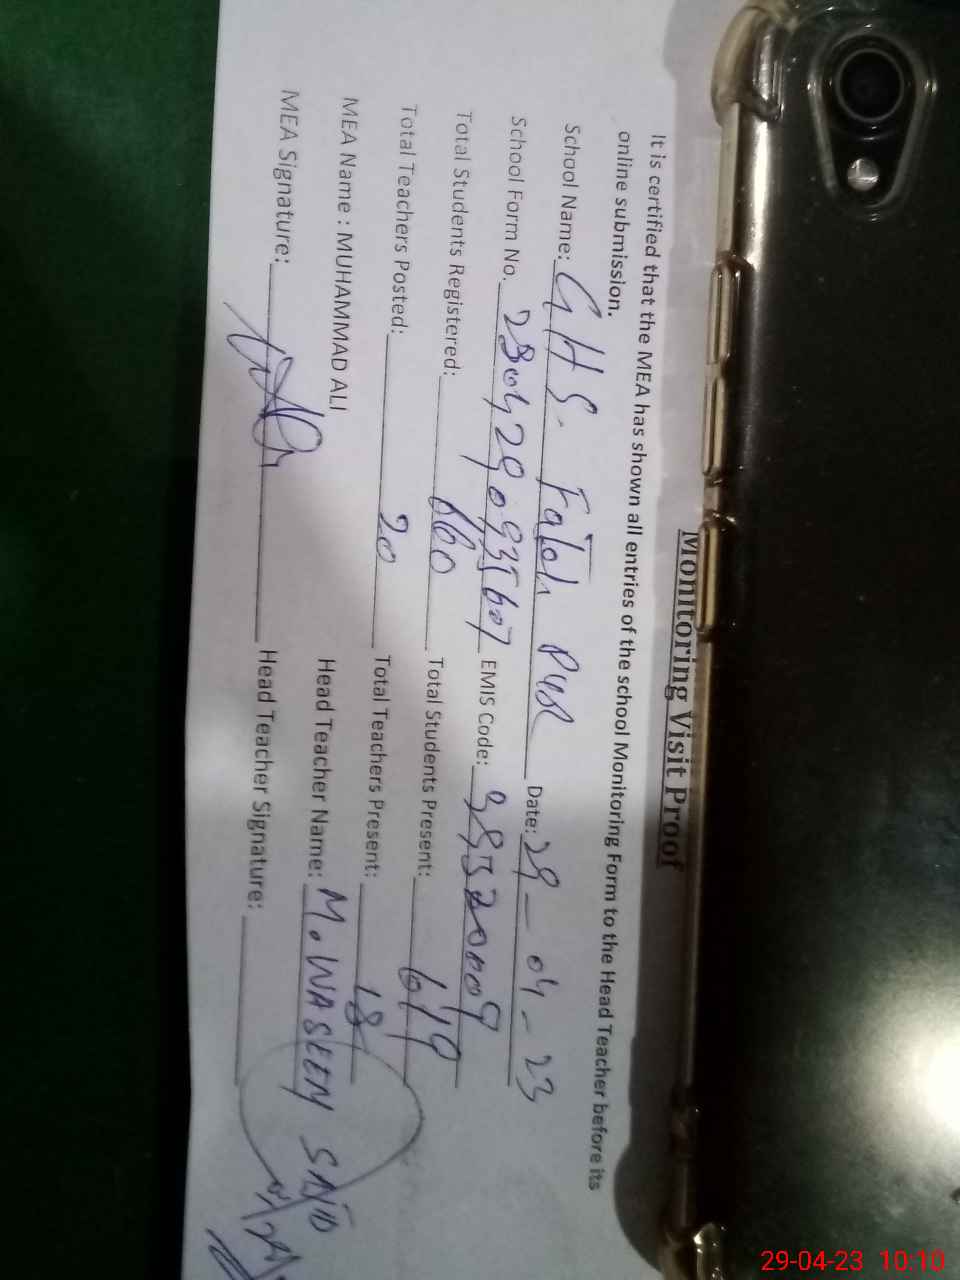 Monitoring Visit Proof
It is certified that the MEA has shown all entries of the school Monitoring Form to the Head Teacher before its
online submission.
School Name: GHS. Fateh Pur Date: 29-04-23
School Form No. EMIS Code: 38520009
Total Students Registered: 660 Total Students Present: 619
Total Teachers Posted: 20 Total Teachers Present: 18
MEA Name : MUHAMMAD ALI Head Teacher Name: M. WASEEM SAJID
MEA Signature: Head Teacher Signature:
29-04-23 10:10